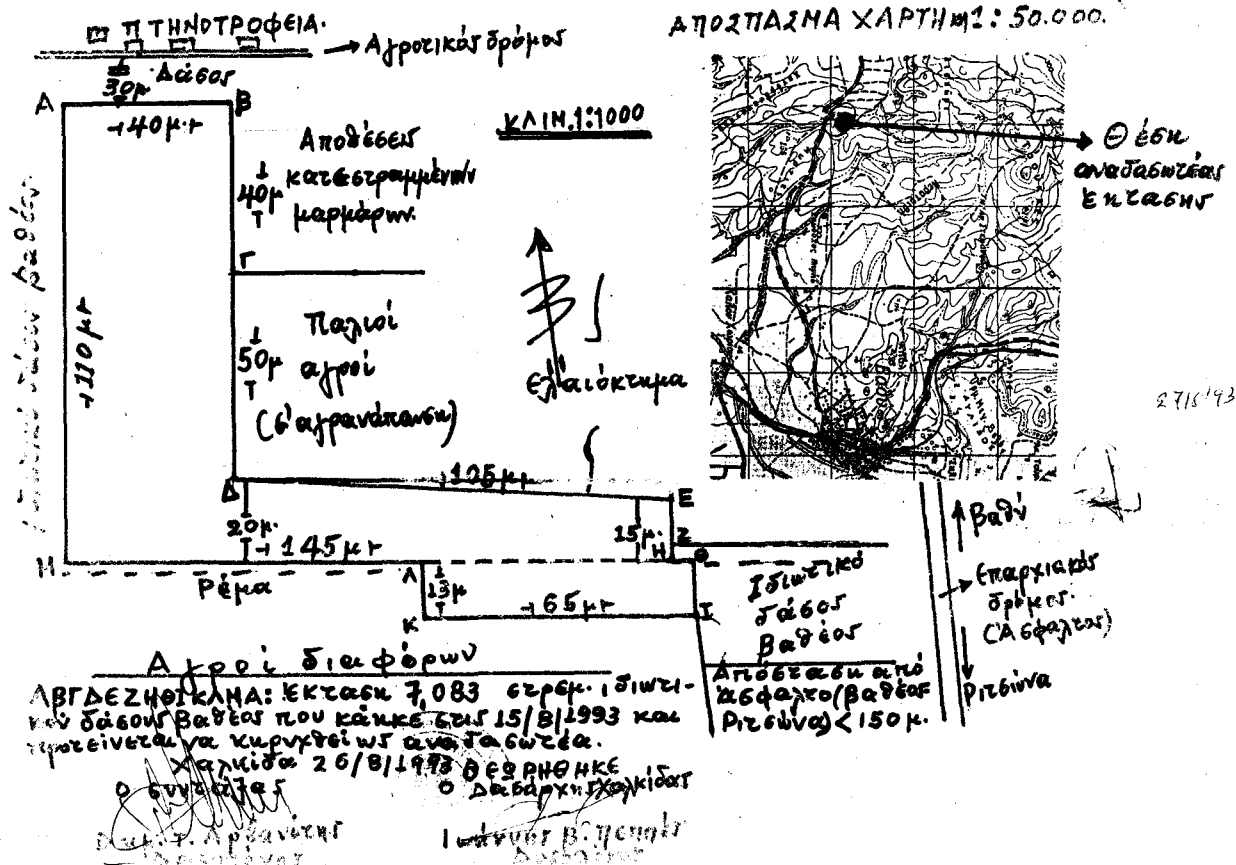 ΠΤΗΝΟΤΡΟΦΕΙΑ.
Αγροτικός δρόμος
ΑΠΟΣΠΑΣΜΑ ΧΑΡΤΗ 1:50.000.
30μ
Δάσος
Α
Β
40μ.
ΚΛΙΜ.1:1000
Αποθέσεις
κατεστραμμένων
μαρμάρων.
40μ
Θέση
αναδασωτέας
έκτασης
Γ
110μ
Παλιοί
αγροί
(σ' αγρανάπαυση)
50μ
Ελαιόκτημα
27/8/93
Δ
105μ
Ε
20μ.
15μ.
Ζ
145μ
Η
Η
Θ
Ρέμα
Λ
13μ
65μ
Κ
Ι
Ιδιωτικό
δάσος
Βαθέος
Βαθύ
Επαρχιακός
δρόμος.
(Άσφαλτος)
Ριτσώνα
Αγροί διαφόρων
Απόσταση από
άσφαλτο (Βαθέος
Ριτσώνα) < 150 μ.
ΑΒΓΔΕΖΗΘΙΚΛΗΑ: Έκταση 7,083 στρεμ. ιδιωτι-
κού δάσους Βαθέος που κάηκε στις 15/8/1993 και
προτείνεται να κηρυχθεί ως αναδασωτέα.
Χαλκίδα 26/8/1993 ΘΕΩΡΗΘΗΚΕ
Ο συντάξας
Ο Δασάρχης Χαλκίδας
Αρβανίτης
Ιωάννης Β.